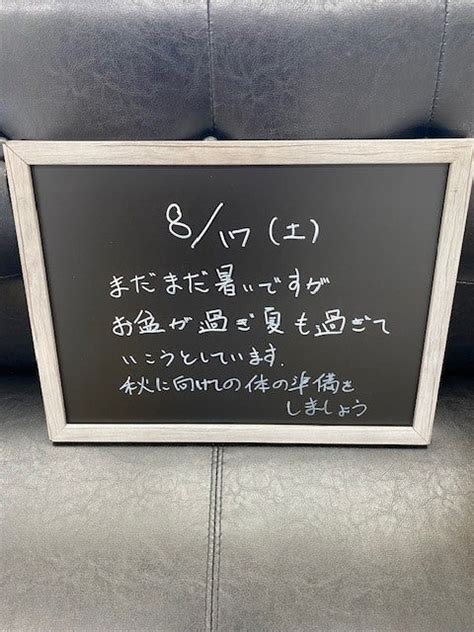 8/17(土)
まだまだ暑いですが
お盆が過ぎ夏も過ぎて
いこうとしています.
秋に向けての体の準備を
しましょう